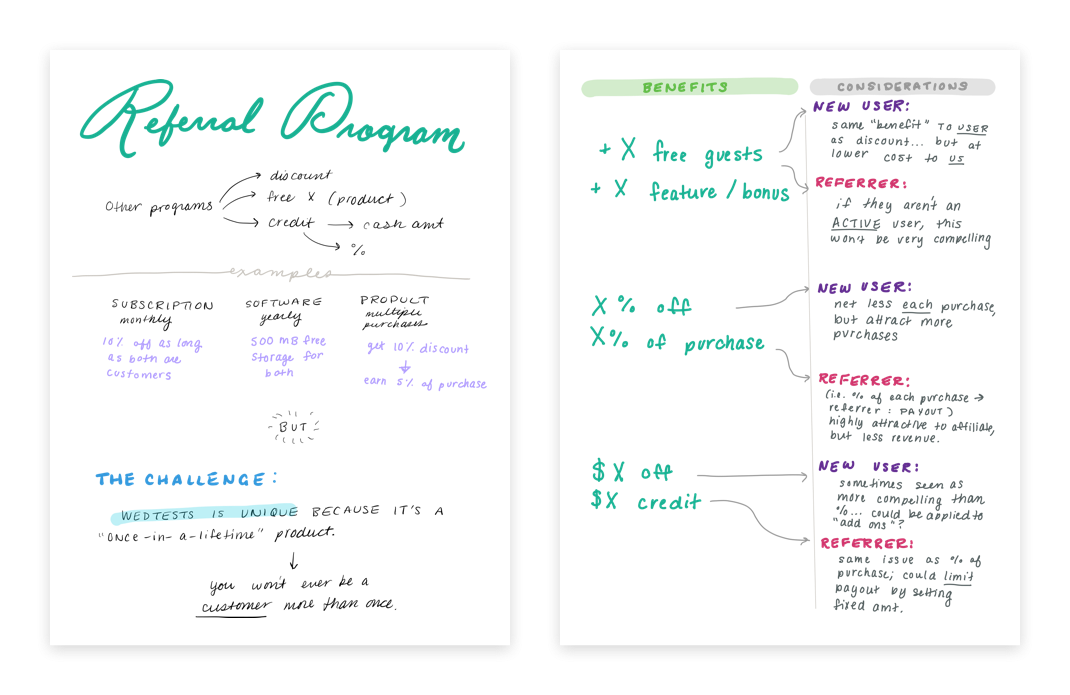 Referral Program
Other programs
discount
free X (product)
credit → cash amt
%
examples
SUBSCRIPTION
monthly
10% off as long
as both are
customers
SOFTWARE
yearly
500 MB free
storage for
both
PRODUCT
multiple
purchases
get 10% discount
earn 5% of purchase
BUT
THE CHALLENGE:
WEDTESTS IS UNIQUE BECAUSE IT'S A
"once-in-a-lifetime" product.
you won't ever be a
customer more than once.
BENEFITS
+ X free guests
+ X feature / bonus
X % off
X% of purchase
$ X off
$X credit
CONSIDERATIONS
NEW USER:
same "benefit" TO USER
as discount... but at
lower cost to us
REFERRER:
if they aren't an
ACTIVE user, this
won't be very compelling
NEW USER:
net less each purchase,
but attract more
purchases
REFERRER:
(i.e. % of each purchase →
referrer : PAYOUT)
highly attractive to affiliate,
but less revenue.
NEW USER:
sometimes seen as
more compelling than
%... could be applied to
"add ons"?
REFERRER:
same issue as % of
purchase; could limit
payout by setting
fixed amt.